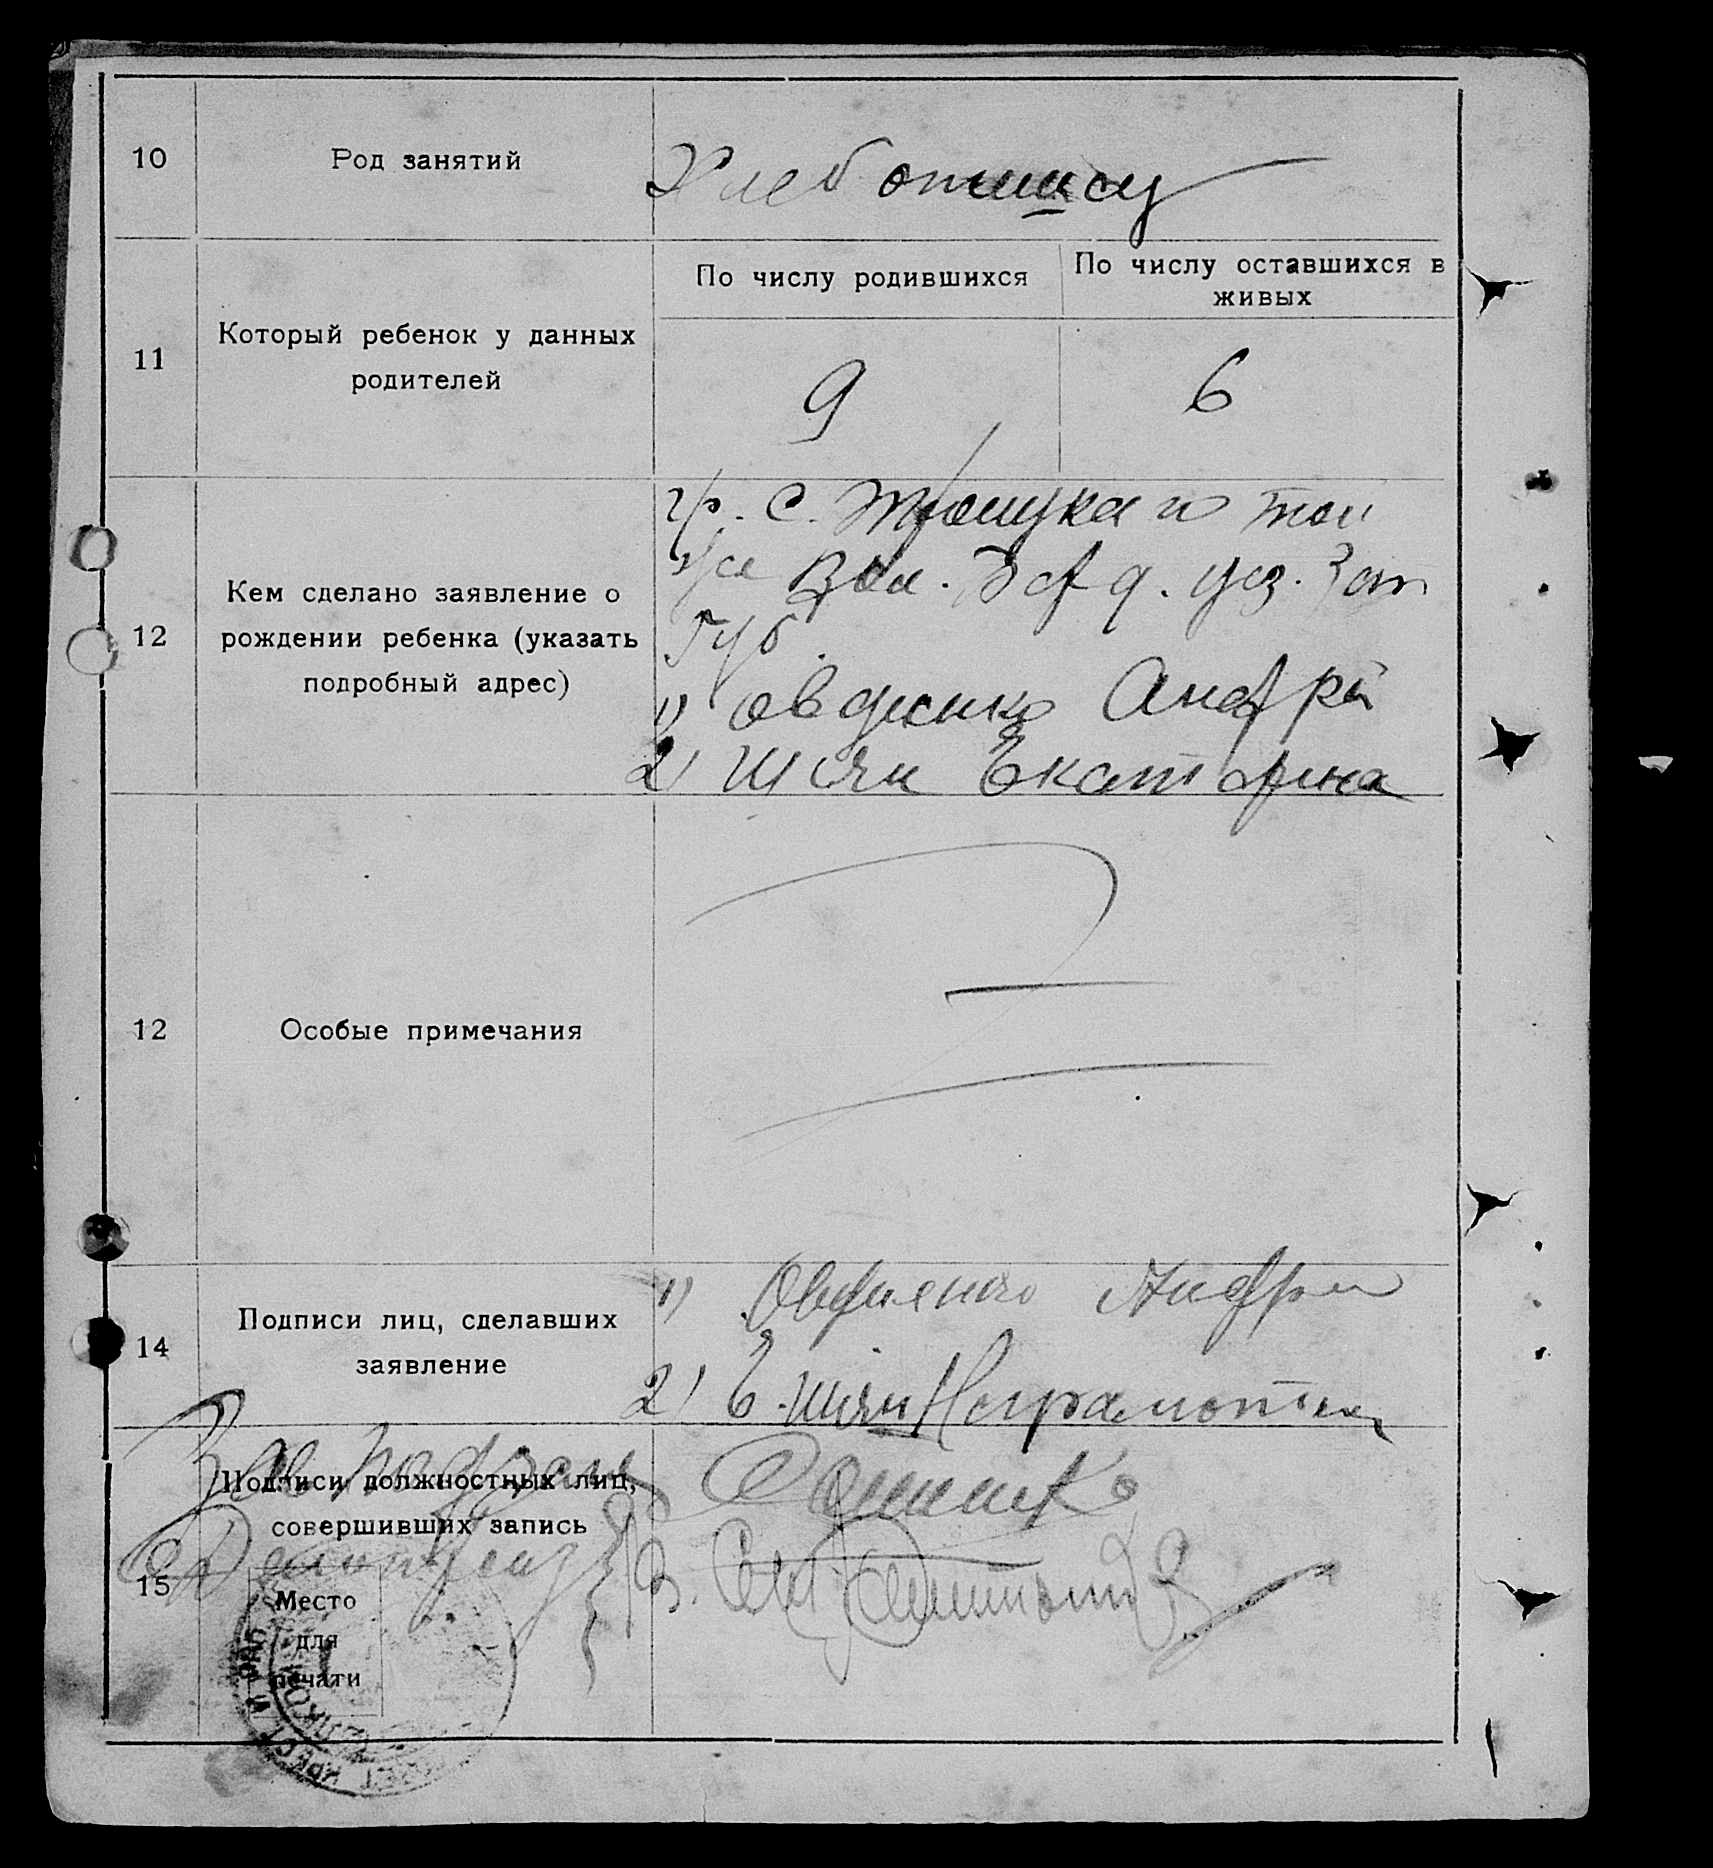 10
Род занятий
Хлебопашец
По числу родившихся
По числу оставшихся в
живых
11
Который ребенок у данных
родителей
9
6
гр. с. Троицка и той
же Вол. Берд. уез. Зап
Губ.
12
Кем сделано заявление о
рождении ребенка (указать
подробный адрес)
1) Овдиенко Андрей
2) Шиян Екатерина
12
Особые примечания
14
Подписи лиц, сделавших
заявление
1) Овдиенко Андрей
2) Е. Шиян Неграмотная
15
Подписи должностных лиц,
совершивших запись
Зав.
Место
для
печати